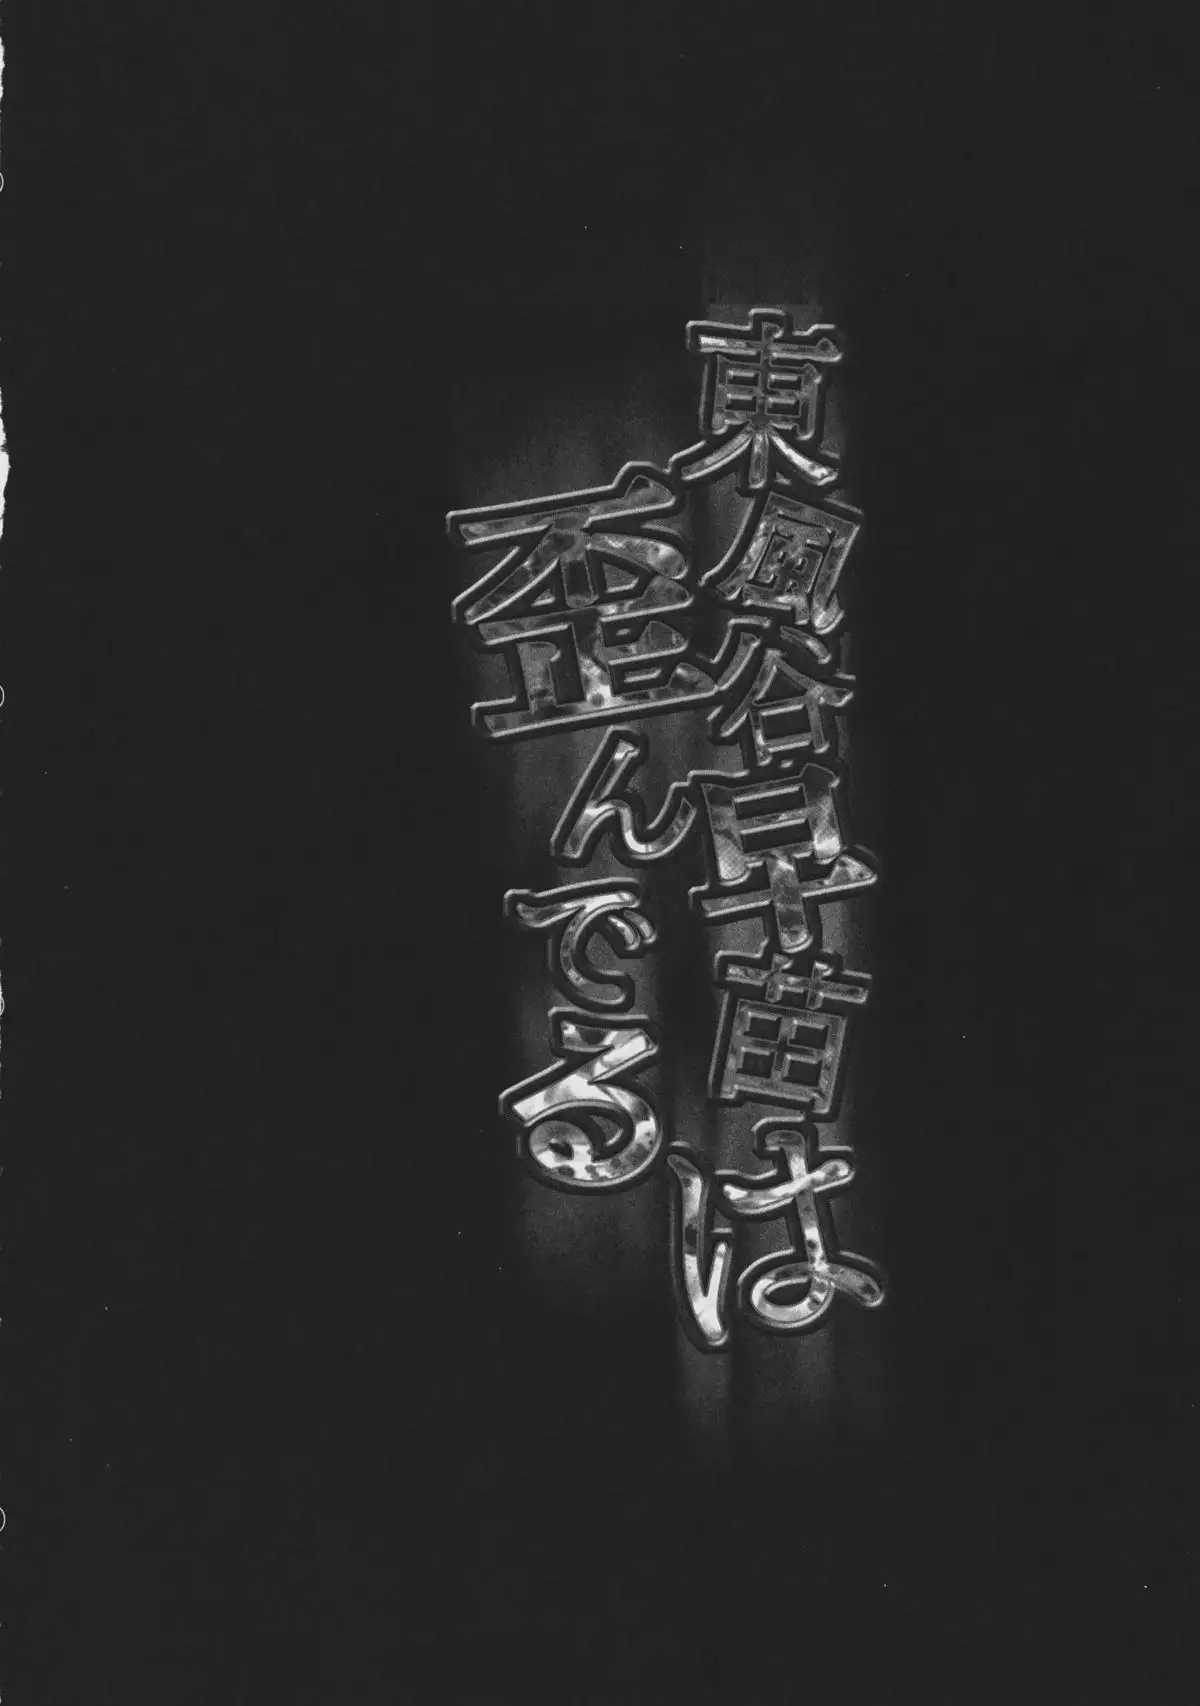 東風谷早苗は
歪んでる